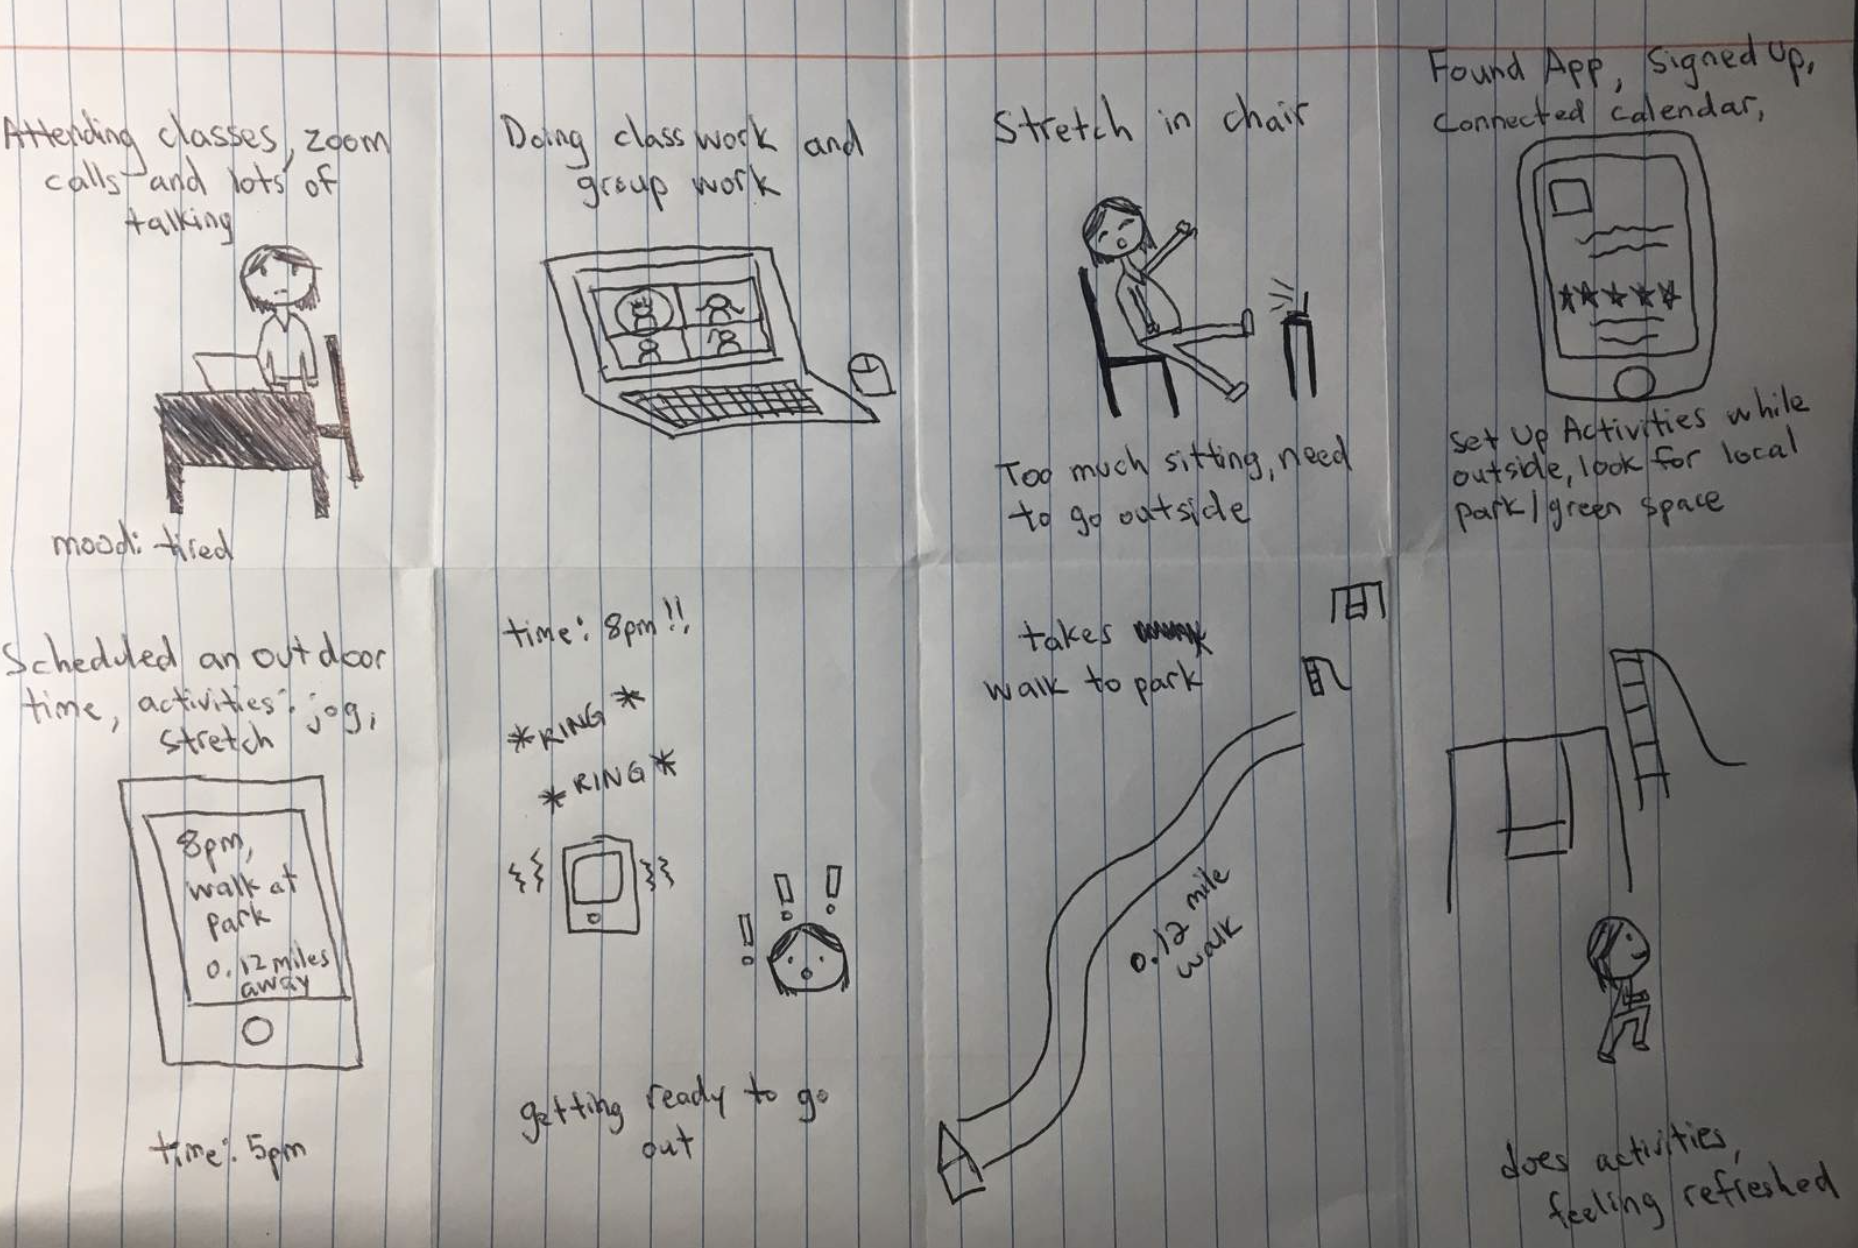 Attending classes, zoom
calls and lots of
talking
mood: tired
Doing class work and
group work
Stretch in chair
Too much sitting, need
to go outside
Found App, Signed Up,
connected calendar,
Set Up Activities while
outside, look for local
park/green space
Scheduled an outdoor
time, activities: jog,
stretch
8pm,
walk at
park
0.12 miles
away
time: 5pm
time: 8pm!!
*RING*
*RING*
getting ready to go
out
takes
walk to park
0.12 mile
walk
does activities,
feeling refreshed